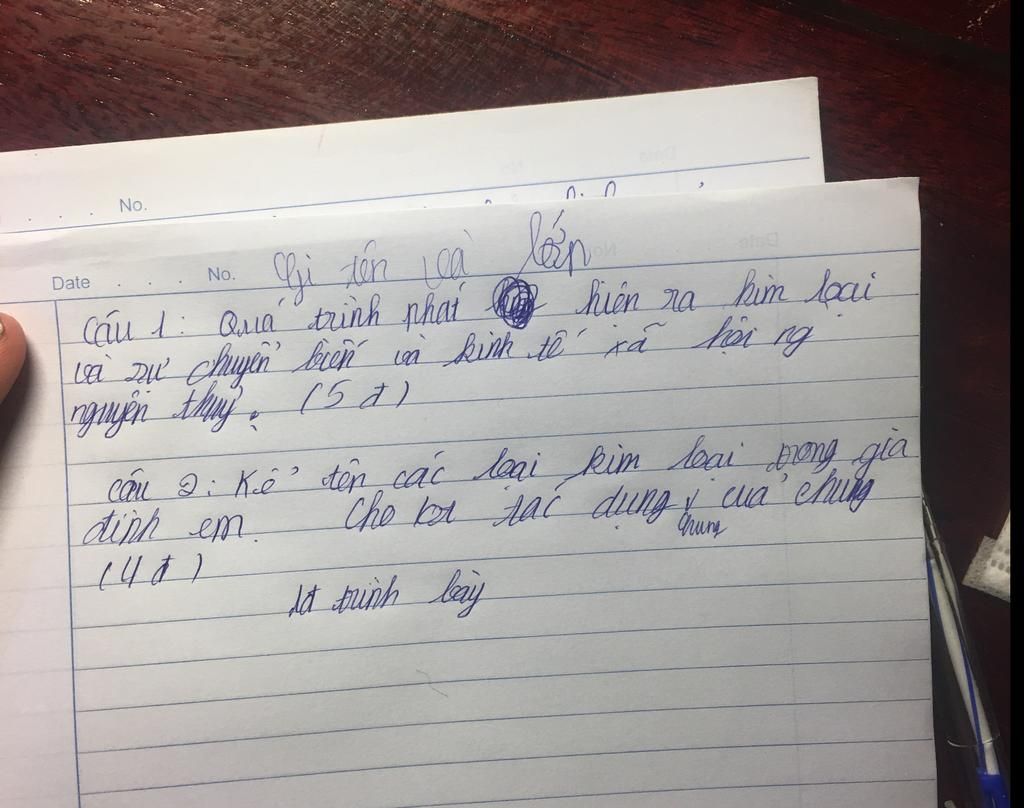 No.
Date . . . . No. Ghi tên và lớp
Câu 1: Quá trình phát hiện ra kim loại
và sự chuyển biến và kinh tế xã hội ng
nguyên thuỷ. (5 đ)
Câu 2: Kể tên các loại kim loại trong gia
đình em. Cho bt tác dụng chung của chúng
(4 đ)
1đ trình bày